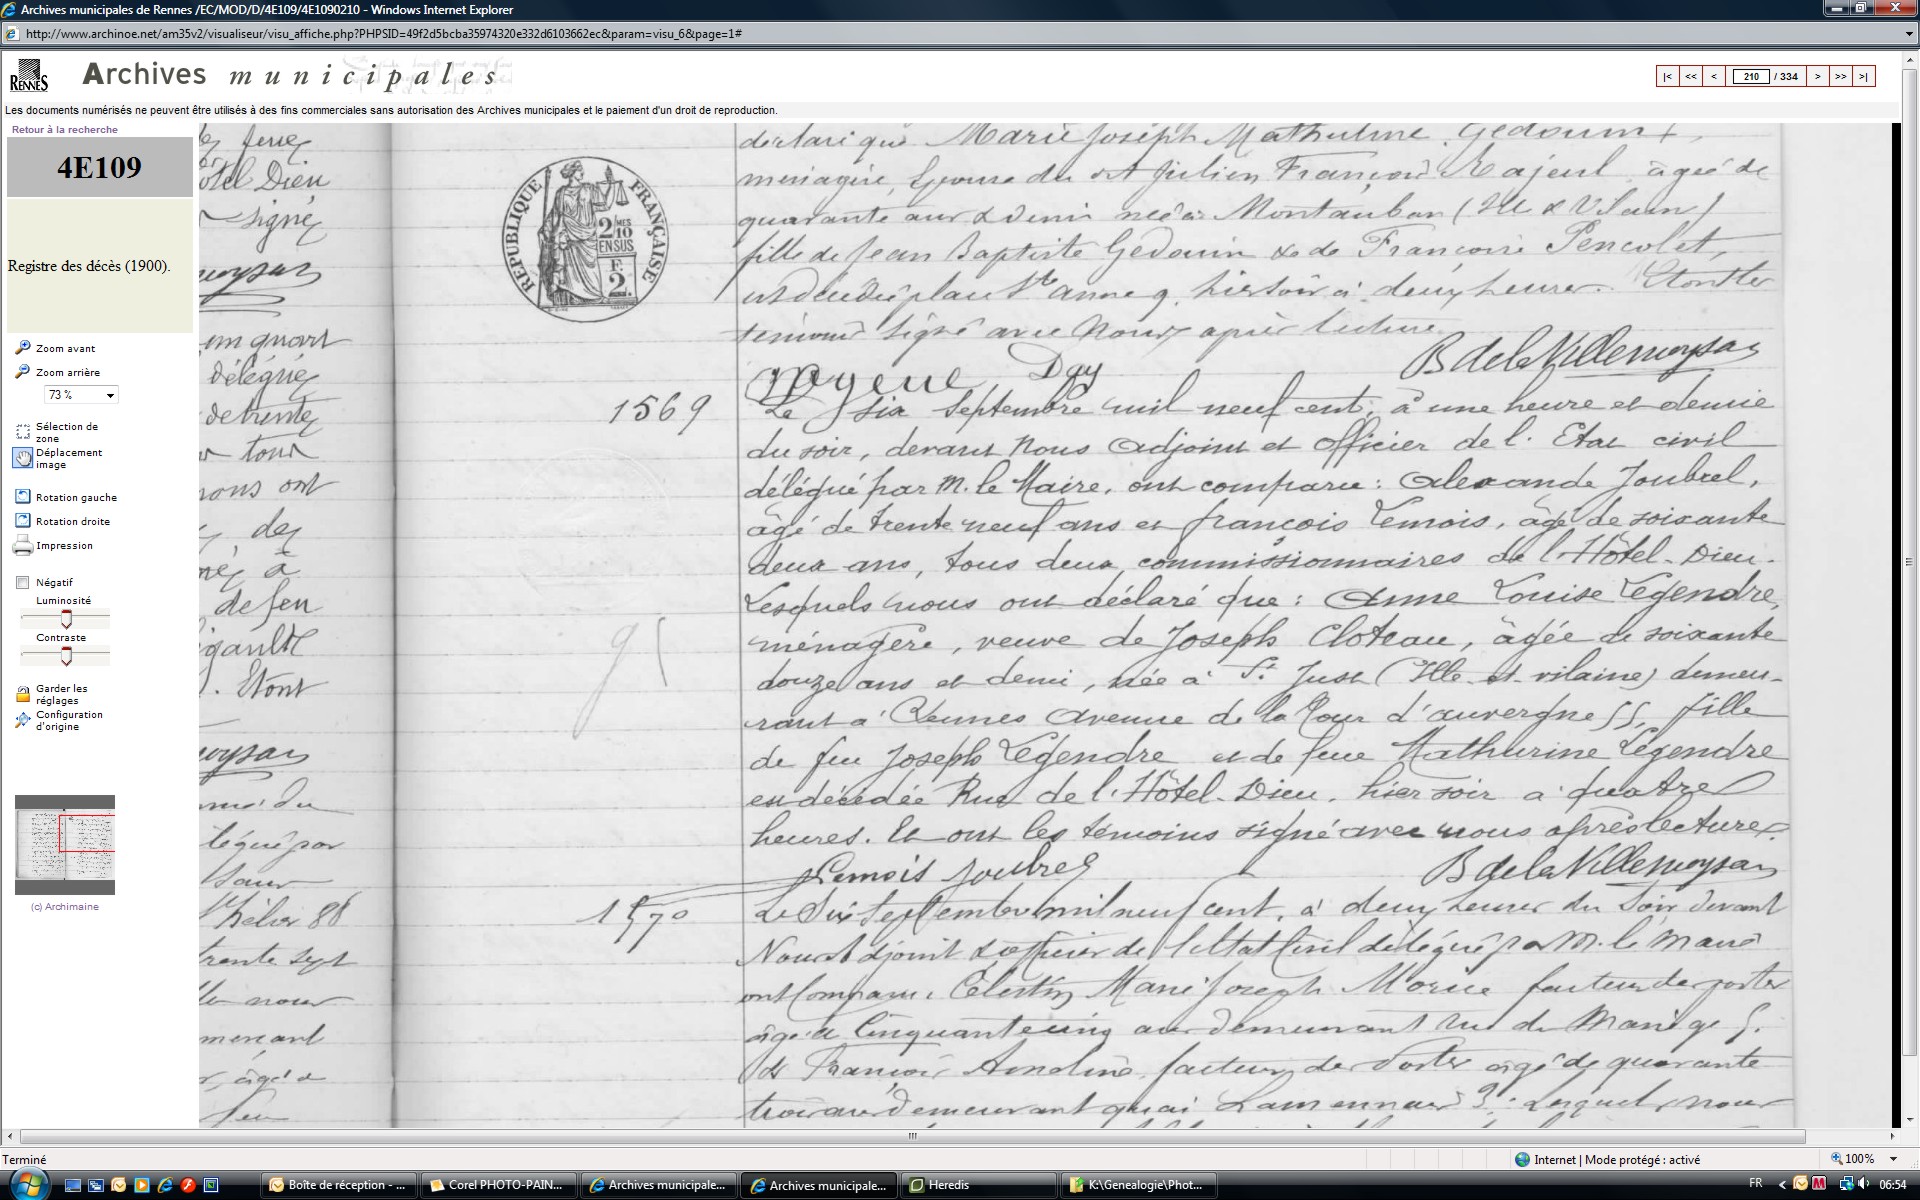 Archives municipales de Rennes /EC/MOD/D/4E109/4E1090210 - Windows Internet Explorer
http://www.archinoe.net/am35v2/visualiseur/visu_affiche.php?PHPSID=49f2d5bcba35974320e332d6103662ec&param=visu_6&page=1#
RENNES Archives municipales
|< << < 210 / 334 > >> >|
Les documents numérisés ne peuvent être utilisés à des fins commerciales sans autorisation des Archives municipales et le paiement d'un droit de reproduction.
Retour à la recherche
4E109
Registre des décès (1900).
Zoom avant
Zoom arrière
73 %
Sélection de
zone
Déplacement
image
Rotation gauche
Rotation droite
Impression
Négatif
Luminosité
Contraste
Garder les
réglages
Configuration
d'origine
(c) Archimaine
ôtel Dieu
signé
un quart
délégué
de trente
nous ont
de
à
de feu
. Et ont
légué par
Hélier 86
trente sept
nous
REPUBLIQUE FRANÇAISE
2 MES
10
EN SUS
F.
2.
déclaré que Marie Joseph Mathurine Gedouin
ménagère, Epouse du Julien François Rajeul âgée de
quarante ans & demi née à Montauban (Ille & Vilaine)
fille de Jean Baptiste Gedouin & de Françoise Pencolet,
est décédée place Ste anne 9, hier soir à deux heures. Et ont les
témoins signé avec Nous après lecture
Day
B de la Villemoysan
1569
Le six Septembre mil neuf cent, à une heure et demie
du soir, devant Nous Adjoint et officier de l'Etat civil
délégué par M. le Maire, ont comparu : Alexandre Joubrel,
âgé de trente neuf ans et françois Lemois, âgé de soixante
deux ans, tous deux commissionnaires de l'Hôtel-Dieu.
Lesquels nous ont déclaré que : Anne Louise Legendre,
ménagère, veuve de Joseph Cloteau, âgée de soixante
douze ans et demi, née à St Just (Ille-et-vilaine) demeu-
rant à Rennes avenue de la Tour d'auvergne 55, fille
de feu Joseph Legendre et de feue Mathurine Legendre
est décédée Rue de l'Hôtel-Dieu, hier soir à quatre
heures. Et ont les témoins signé avec nous après lecture.
Lemois Joubrel
B de la Villemoysan
1570
Le Six Septembre mil neuf cent, à deux heures du Soir devant
Nous Adjoint & officier de l'Etat Civil délégué par M. le Maire
ont Comparu, Célestin Marie Joseph Morice facteur des postes
âgé de Cinquante cinq ans demeurant rue du Manège 5.
& François facteur des Postes âgé de quarante
trois ans demeurant quai Lamennais 3. Lesquels nous
Terminé
Internet | Mode protégé : activé
100%
Boîte de réception - ...
Corel PHOTO-PAIN...
Archives municipale...
Archives municipale...
Heredis
K:\Genealogie\Phot...
FR
06:54